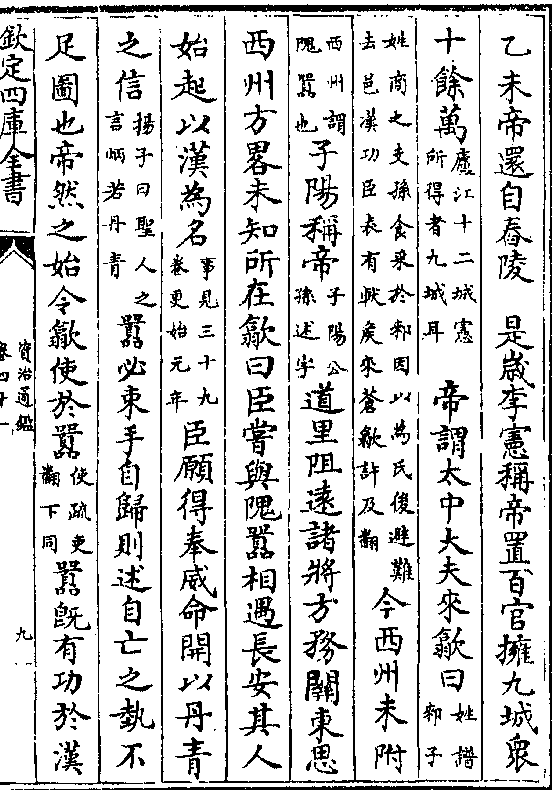 乙未帝還自舂陵　是歲李憲稱帝置百官擁九城衆
十餘萬廬江十二城憲所得者九城耳　帝謂太中大夫來歙曰姓譜郲子
姓商之支孫食采於郲因以為氏後避難去邑漢功臣表有軑矦來蒼歙許及翻今西州未附
西州謂隗囂也子陽稱帝子陽公孫述字道里阻遠諸將方務關東思
西州方畧未知所在歙曰臣嘗與隗囂相遇長安其人
始起以漢為名事見三十九卷更始元年臣願得奉威命開以丹青
之信揚子曰聖人之言炳若丹青囂必束手自歸則述自亡之埶不
足圖也帝然之始令歙使於囂使疏吏翻下同囂既有功於漢
欽定四庫全書
資治通鑑
卷四十一
九